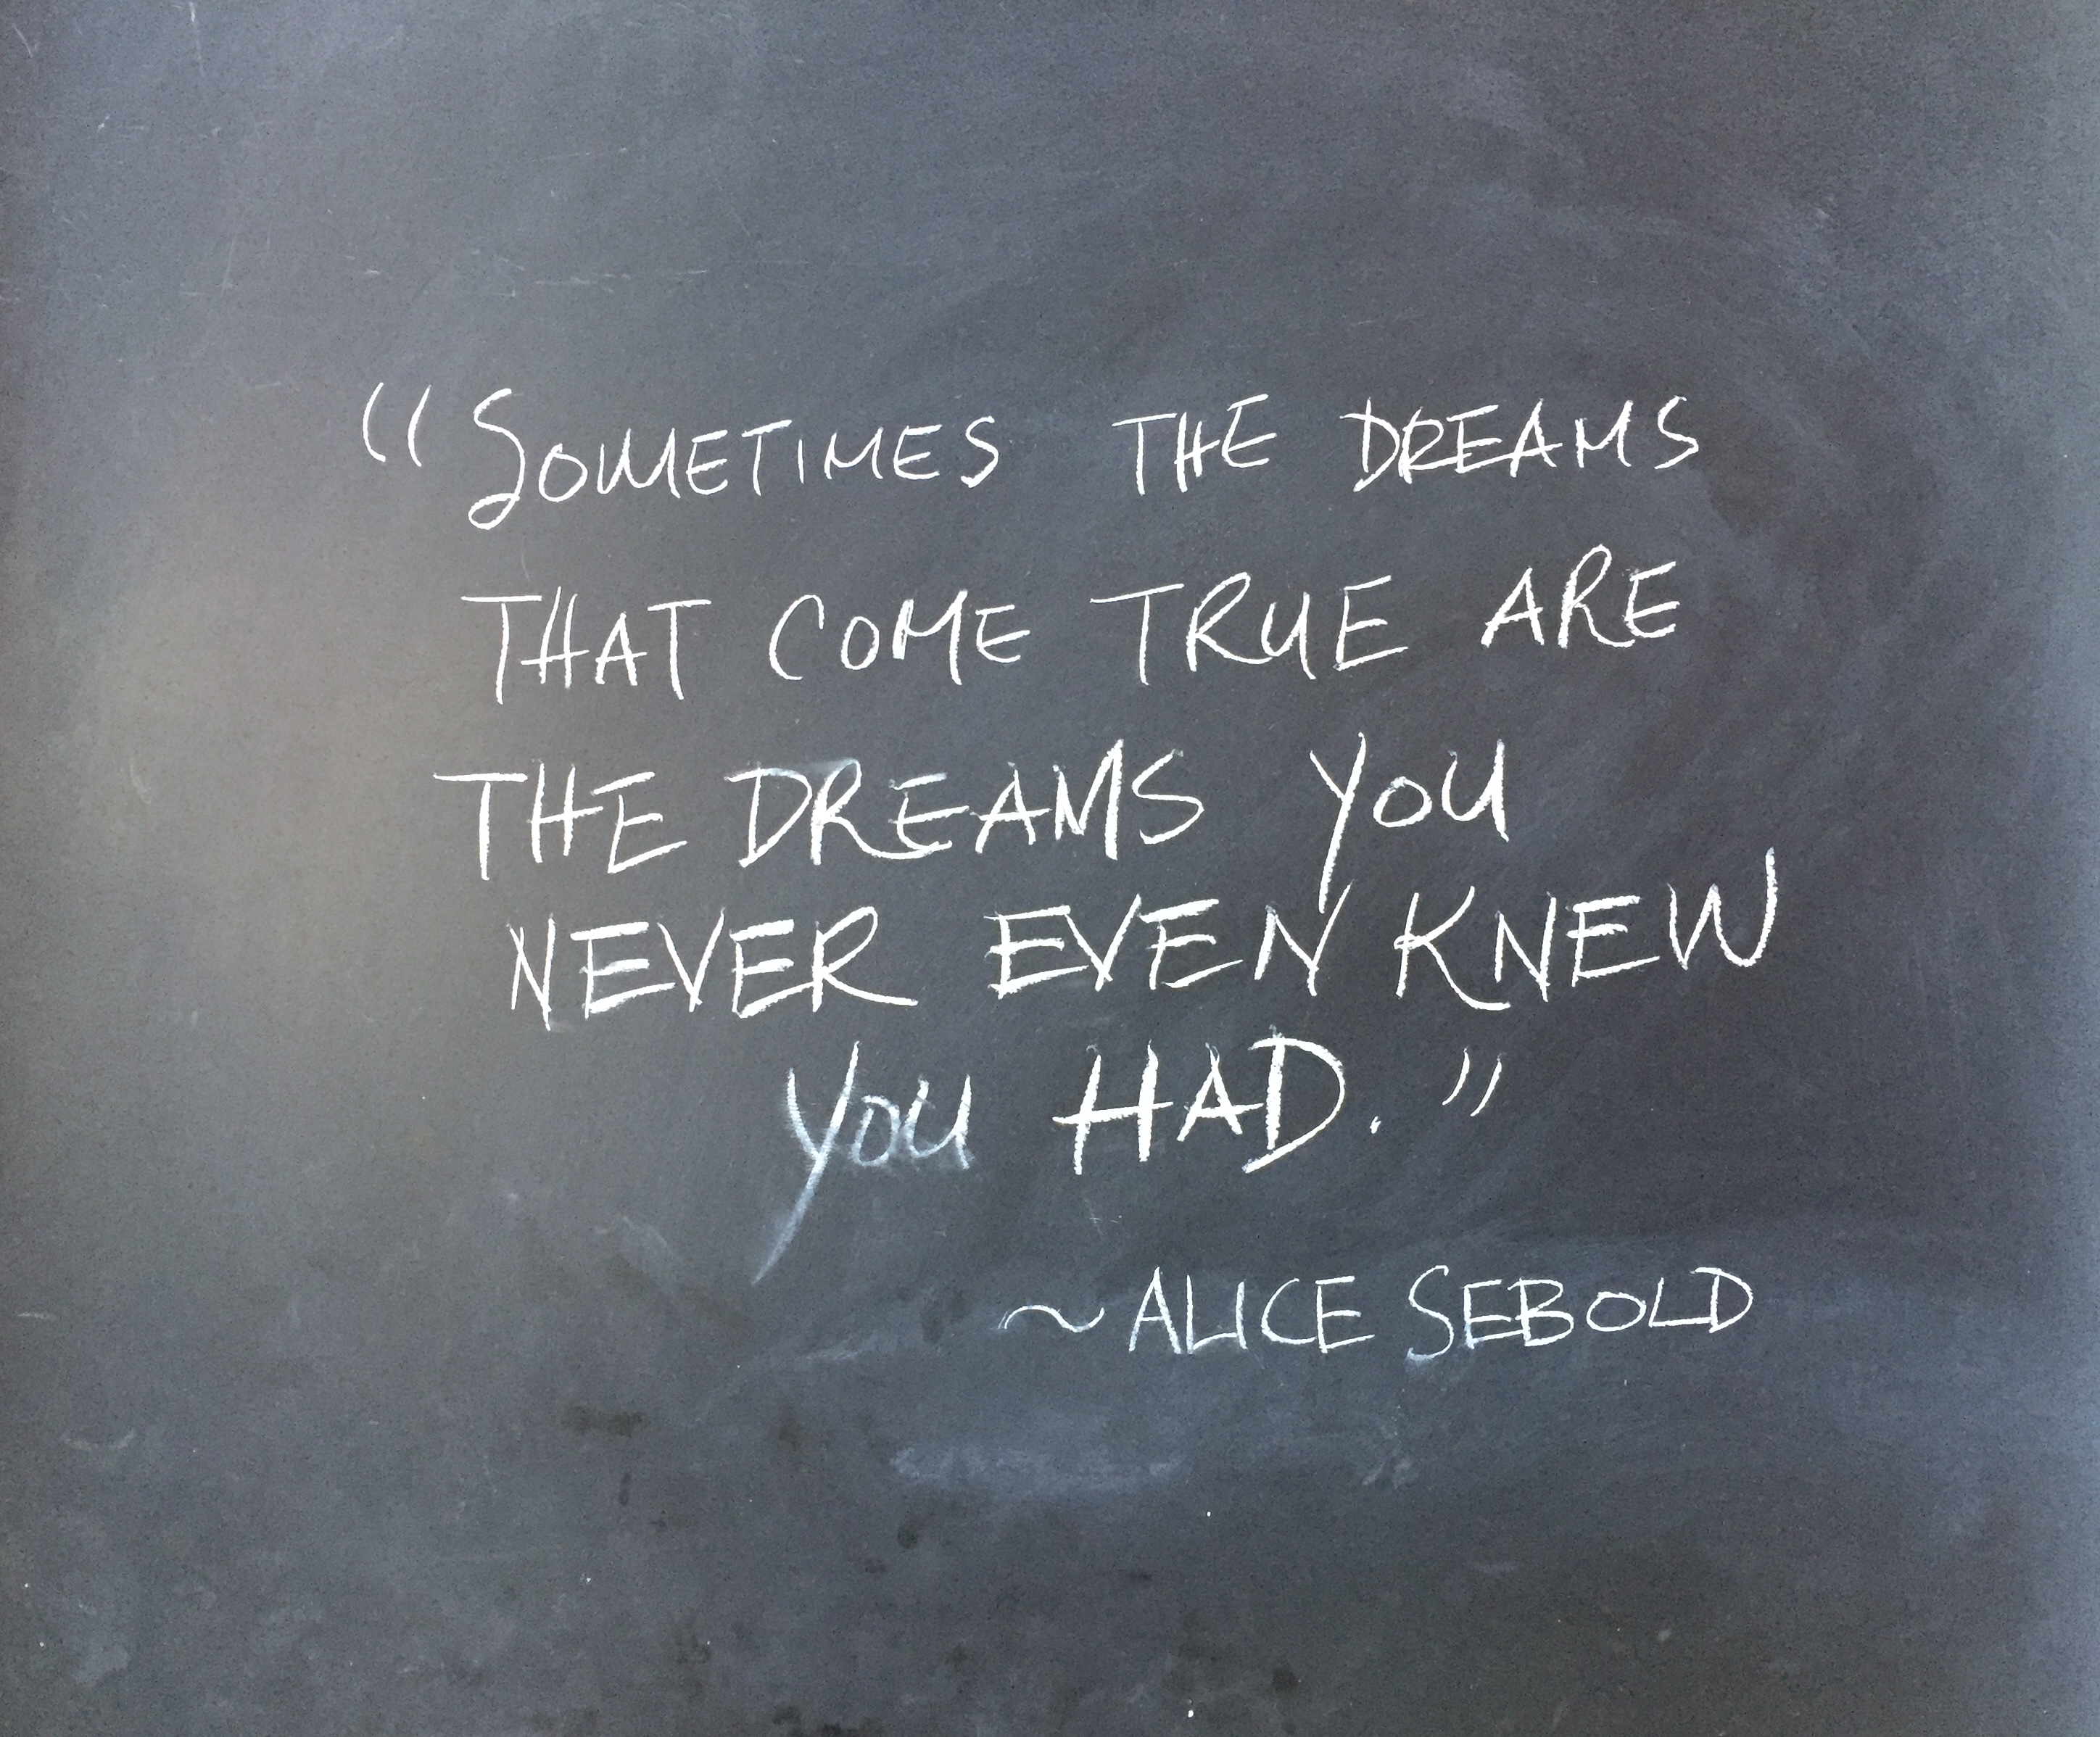 “SOMETIMES THE DREAMS
THAT COME TRUE ARE
THE DREAMS YOU
NEVER EVEN KNEW
YOU HAD.”
~ALICE SEBOLD